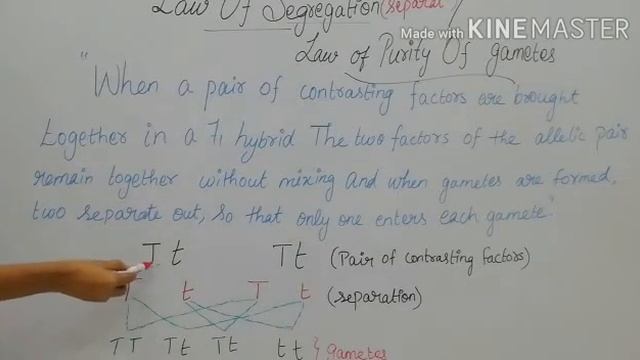 Law Of Segregation (separat
Made with KINEMASTER
Law of Purity Of gametes
"When a pair of contrasting factors are brought
together in a F1 hybrid The two factors of the allelic pair
remain together without mixing and when gametes are formed,
two separate out, so that only one enters each gamete"
T t Tt (Pair of contrasting factors)
T t T t (separation)
TT Tt Tt tt } gametes